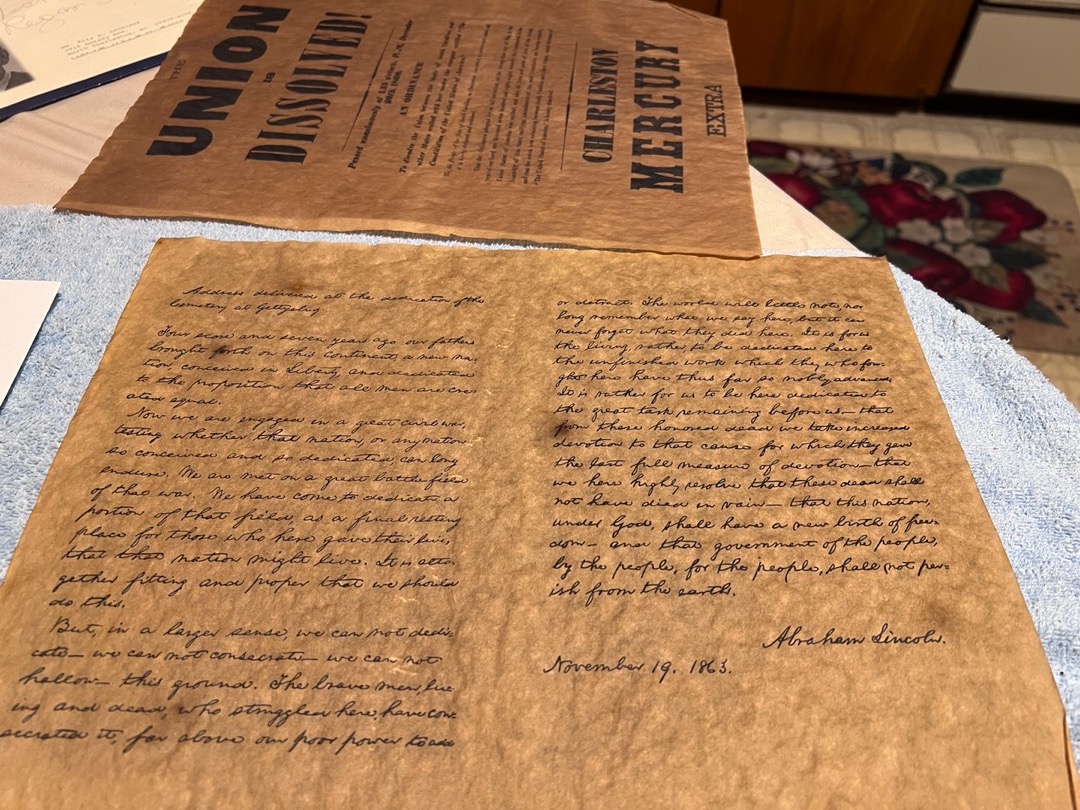 THE
UNION
IS
DISSOLVED!
Passed unanimously at 1.15 o'clock, P. M., December
20th, 1860.
AN ORDINANCE
CHARLESTON
MERCURY
EXTRA
Address delivered at the dedication of the
Cemetery at Gettysburg
Four score and seven years ago our fathers
brought forth on this continent, a new na-
tion, conceived in Liberty, and dedicated
to the proposition that all men are cre-
ated equal.
Now we are engaged in a great civil war,
testing whether that nation, or any nation
so conceived and so dedicated, can long
endure. We are met on a great battle-field
of that war. We have come to dedicate a
portion of that field, as a final resting
place for those who here gave their lives,
that that nation might live. It is alto-
gether fitting and proper that we should
do this.
But, in a larger sense, we can not dedi-
cate— we can not consecrate— we can not
hallow— this ground. The brave men, liv-
ing and dead, who struggled here, have con-
secrated it, far above our poor power to add
or detract. The world will little note, nor
long remember what we say here, but it can
never forget what they did here. It is for us
the living, rather, to be dedicated here to
the unfinished work which they who fou-
ght here have thus far so nobly advanced.
It is rather for us to be here dedicated to
the great task remaining before us— that
from these honored dead we take increased
devotion to that cause for which they gave
the last full measure of devotion— that
we here highly resolve that these dead shall
not have died in vain— that this nation,
under God, shall have a new birth of free-
dom— and that government of the people,
by the people, for the people, shall not per-
ish from the earth.
Abraham Lincoln.
November 19. 1863.